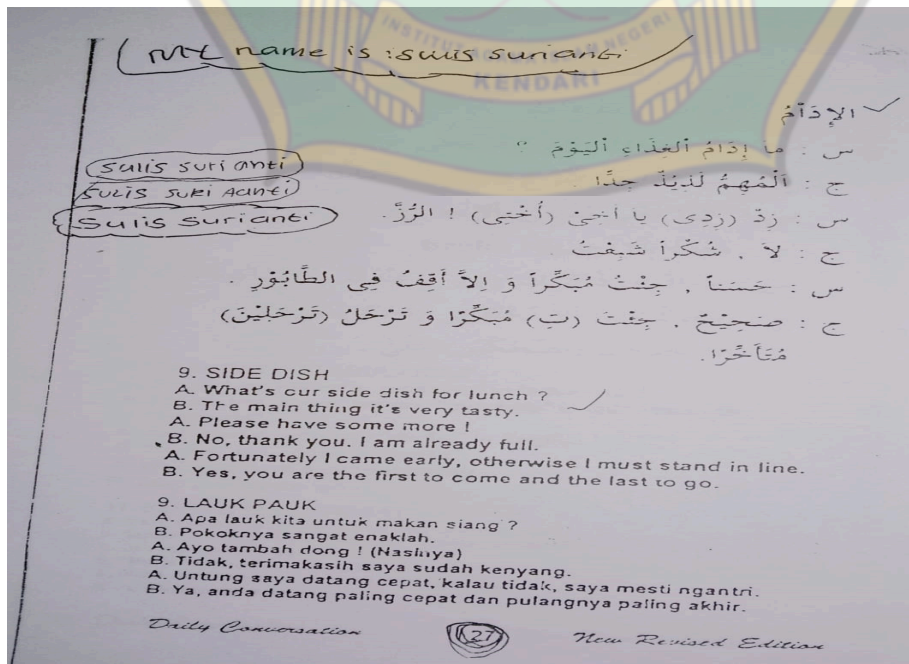 INSTITUT AGAMA ISLAM NEGERI
KENDARI
My name is : sulis surianti
الإِدَامُ
س : مَا إِدَامُ الْغِذَاءِ الْيَوْمَ ؟
ج : الْمُهِمُّ لَذِيْذٌ جِدًّا .
س : زِدْ (زِدِى) يَا أَخِىْ (أُخْتِى) ! الرُّزَّ.
ج : لاَ , شُكْراً شَبِعْتُ .
س : حَسَناً , جِئْتُ مُبَكِّراً وَ اِلاَّ أَقِفُ فِى الطَّابُوْرِ .
ج : صَحِيْحٌ , جِئْتَ (تِ) مُبَكِّرًا وَ تَرْحَلُ (تَرْحَلِيْنَ)
مُتَأَخِّرًا.
sulis suri anti
Sulis suri Aanti
Sulis Surianti
9. SIDE DISH
A. What's our side dish for lunch ?
B. The main thing it's very tasty.
A. Please have some more !
B. No, thank you. I am already full.
A. Fortunately I came early, otherwise I must stand in line.
B. Yes, you are the first to come and the last to go.
9. LAUK PAUK
A. Apa lauk kita untuk makan siang ?
B. Pokoknya sangat enaklah.
A. Ayo tambah dong ! (Nasinya)
B. Tidak, terimakasih saya sudah kenyang.
A. Untung saya datang cepat, kalau tidak, saya mesti ngantri.
B. Ya, anda datang paling cepat dan pulangnya paling akhir.
Daily Conversation
27
New Revised Edition